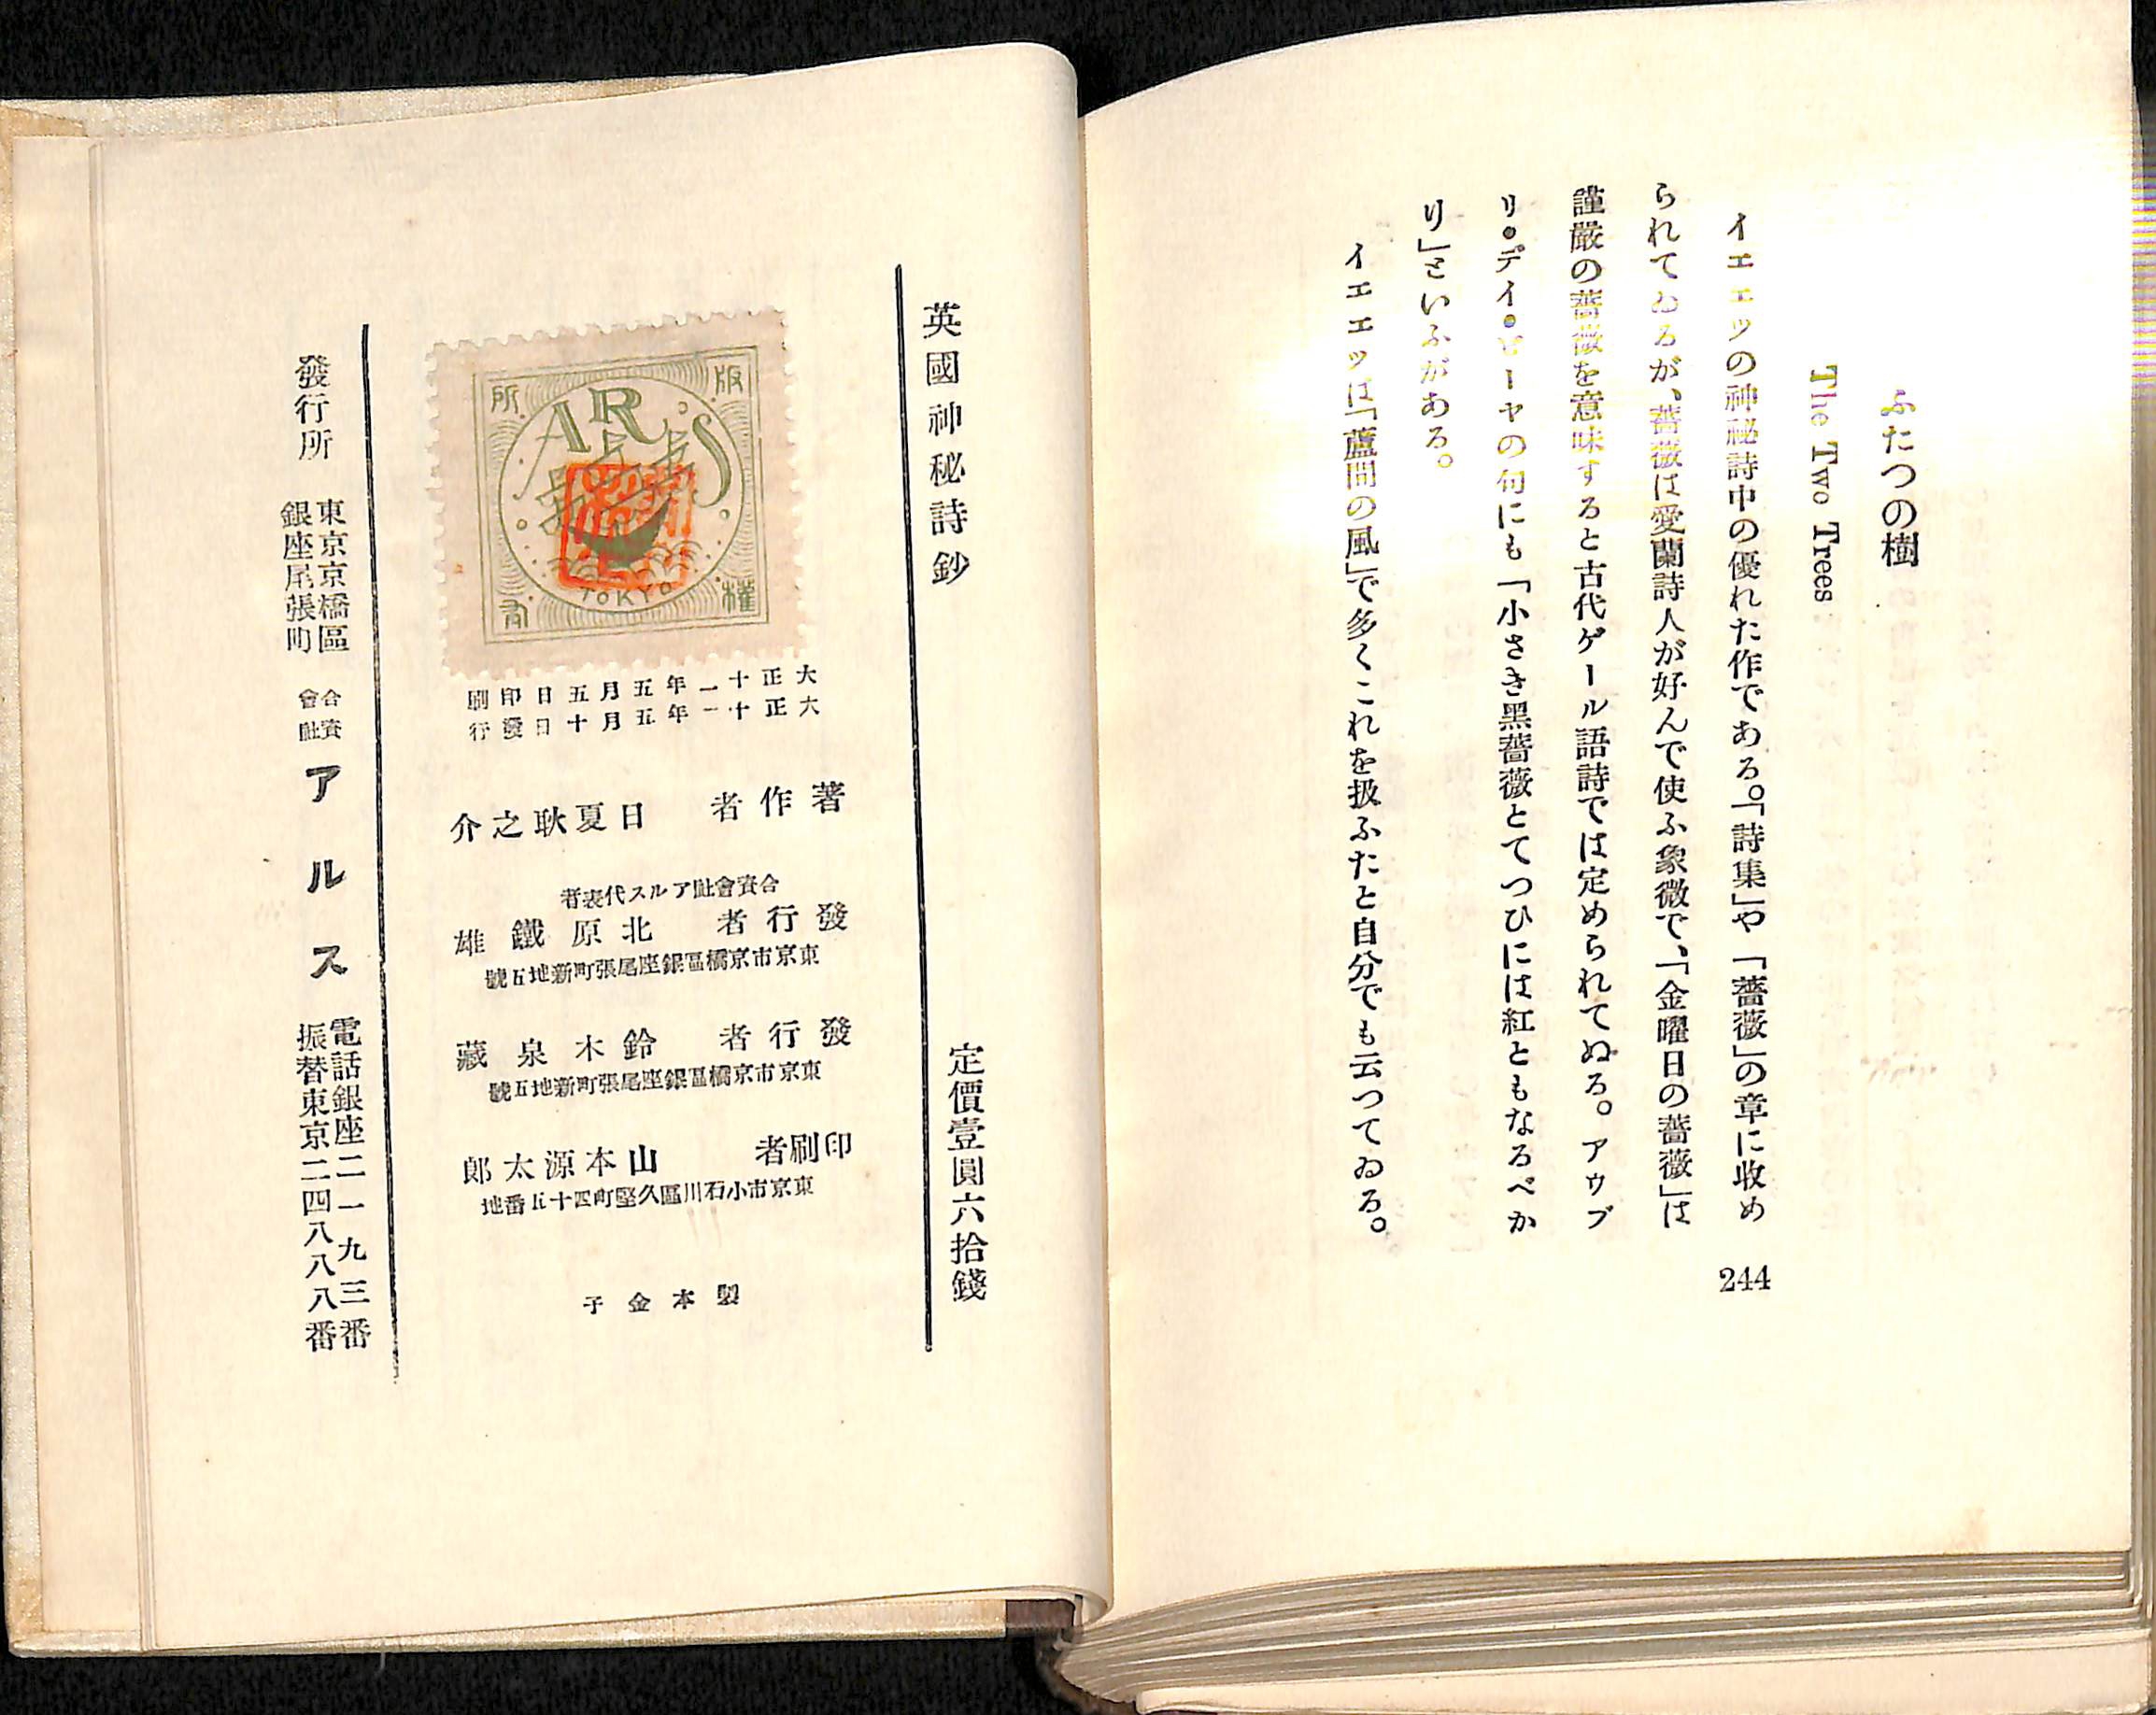 ふたつの樹
The Two Trees
イエエツの神秘詩中の優れた作である。「詩集」や「薔薇」の章に收め
られてゐるが、薔薇は愛蘭詩人が好んで使ふ象徴で、「金曜日の薔薇」は
謹嚴の薔薇を意味すると古代ゲール語詩では定められてゐる。アウブ
リ・デイ・ビーヤの句にも「小さき黑薔薇とてつひには紅ともなるべか
り」といふがある。
イエエツは「蘆間の風」で多くこれを扱ふたと自分でも云つてゐる。
244
英國神秘詩鈔
定價壹圓六拾錢
版權所有
ARS
TOKYO
大正十一年五月五日印刷
大正十一年五月十日發行
著作者 日夏耿之介
合資會社アルス代表者
發行者 北原鐵雄
東京市京橋區銀座尾張町新地五號
發行者 鈴木泉藏
東京市京橋區銀座尾張町新地五號
印刷者 山本源太郎
東京市小石川區久堅町四十五番地
製本金子
發行所
東京京橋區
銀座尾張町
合資
會社
アルス
電話銀座二一九三番
振替東京二四八八八番